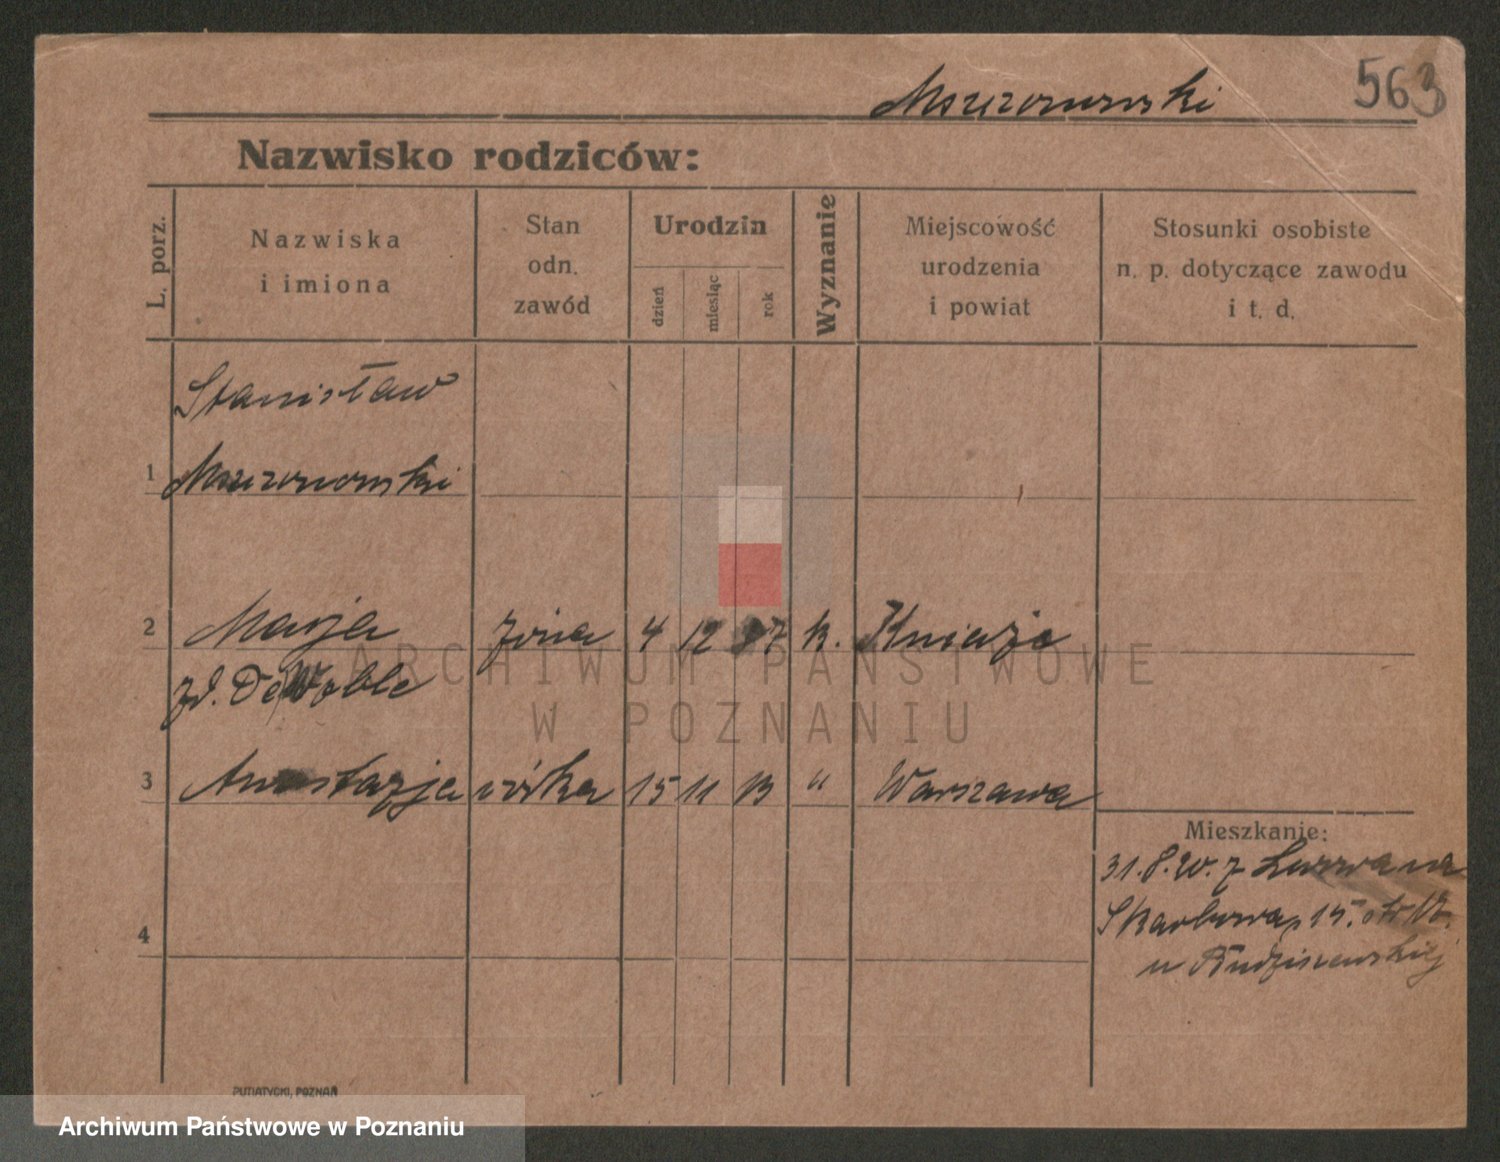 563
Mszczonowski
Nazwisko rodziców:
L. porz.
Nazwiska
i imiona
Stan
odn.
zawód
Urodzin
dzień
miesiąc
rok
Wyznanie
Miejscowość
urodzenia
i powiat
Stosunki osobiste
n. p. dotyczące zawodu
i t. d.
Stanisław
1 Mszczonowski
2 Marja żona 4 12 87 k. Kniaże
zd. De
3 Anastazja córka 15 11 13 " Warszawa
4
Mieszkanie:
31.8.20. z Lwowa na
Skarbowa 15.
u Budziszewskiej
PUTIATYCKI, POZNAŃ
ARCHIWUM PAŃSTWOWE
W POZNANIU
Archiwum Państwowe w Poznaniu